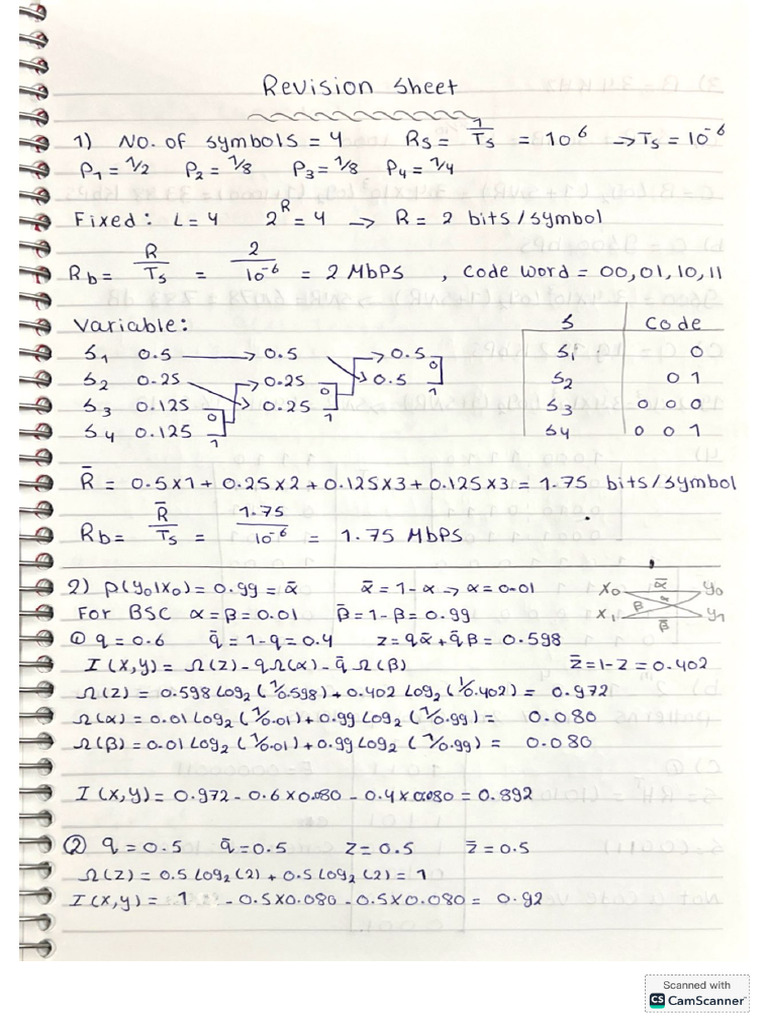 Revision Sheet
1) No. of symbols = 4 Rs = 1/Ts = 10^6 → Ts = 10^-6
P1 = 1/2 P2 = 1/8 P3 = 1/8 P4 = 1/4
Fixed: L = 4 2^R = 4 → R = 2 bits/symbol
Rb = R/Ts = 2/10^-6 = 2 Mbps , code word = 00, 01, 10, 11
Variable:
S1 0.5 → 0.5 → 0.5 0
S2 0.25 → 0.25 0 → 0.5 1
S3 0.125 0 → 0.25 1
S4 0.125 1
S Code
S1 0
S2 0 1
S3 0 0 0
S4 0 0 1
R̄ = 0.5x1 + 0.25x2 + 0.125x3 + 0.125x3 = 1.75 bits/symbol
Rb = R̄/Ts = 1.75/10^-6 = 1.75 Mbps
2) P(y0|x0) = 0.99 = ᾱ ᾱ = 1-α → α = 0.01
For BSC α = β = 0.01 β̄ = 1-β = 0.99
x0 ᾱ y0
β α
x1 β̄ y1
① q = 0.6 q̄ = 1-q = 0.4 z = qᾱ + q̄β = 0.598
I(X,Y) = Ω(z) - qΩ(α) - q̄ Ω(β) z̄ = 1-z = 0.402
Ω(z) = 0.598 log2(1/0.598) + 0.402 log2(1/0.402) = 0.972
Ω(α) = 0.01 log2(1/0.01) + 0.99 log2(1/0.99) = 0.080
Ω(β) = 0.01 log2(1/0.01) + 0.99 log2(1/0.99) = 0.080
I(X,Y) = 0.972 - 0.6x0.080 - 0.4x0.080 = 0.892
② q = 0.5 q̄ = 0.5 z = 0.5 z̄ = 0.5
Ω(z) = 0.5 log2(2) + 0.5 log2(2) = 1
I(X,Y) = 1 - 0.5x0.080 - 0.5x0.080 = 0.92
Scanned with
CS CamScanner